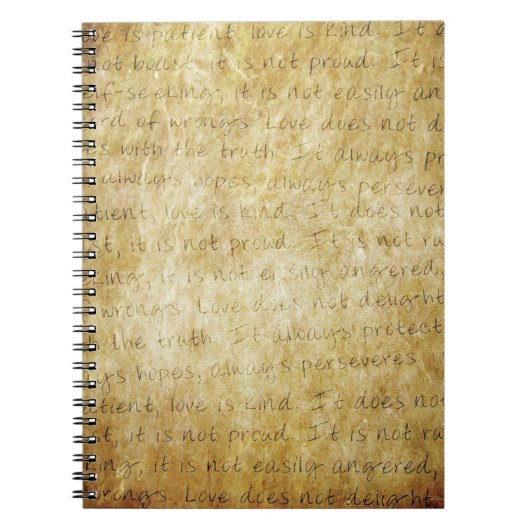 ve is patient, love is kind. It d
not boast, it is not proud. It is
elf-seeking, it is not easily an
ord of wrongs. Love does not d
es with the truth. It always pr
always hopes, always perseveres
atient, love is kind. It does not
st, it is not proud. It is not ru
eking, it is not easily angered,
f wrongs. Love does not delight
h the truth. It always protect
ays hopes, always perseveres.
atient, love is kind. It does not
st, it is not proud. It is not ru
king, it is not easily angered,
wrongs. Love does not delight.